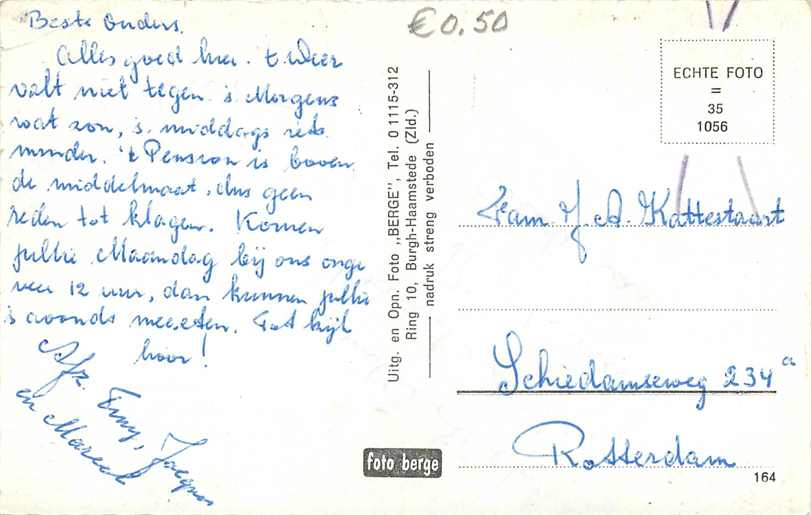 Beste Ouders.
Alles goed hier. t Weer
valt niet tegen 's Morgens
wat zon, 's middags iets
minder. 't Pension is boven
de middelmaat, dus geen
reden tot klagen. Komen
jullie Maandag bij ons onge
veer 12 uur, dan kunnen jullie
's avonds meeeten. Tot kijk
hoor!
en Marcel
€0.50
Uitg. en Opn. Foto „BERGE", Tel. 0 1115-312
Ring 10, Burgh-Haamstede (Zld.)
nadruk streng verboden
foto berge
ECHTE FOTO
=
35
1056
Fam. J. A. Kattestaart
Schiedamseweg 234a
Rotterdam
164